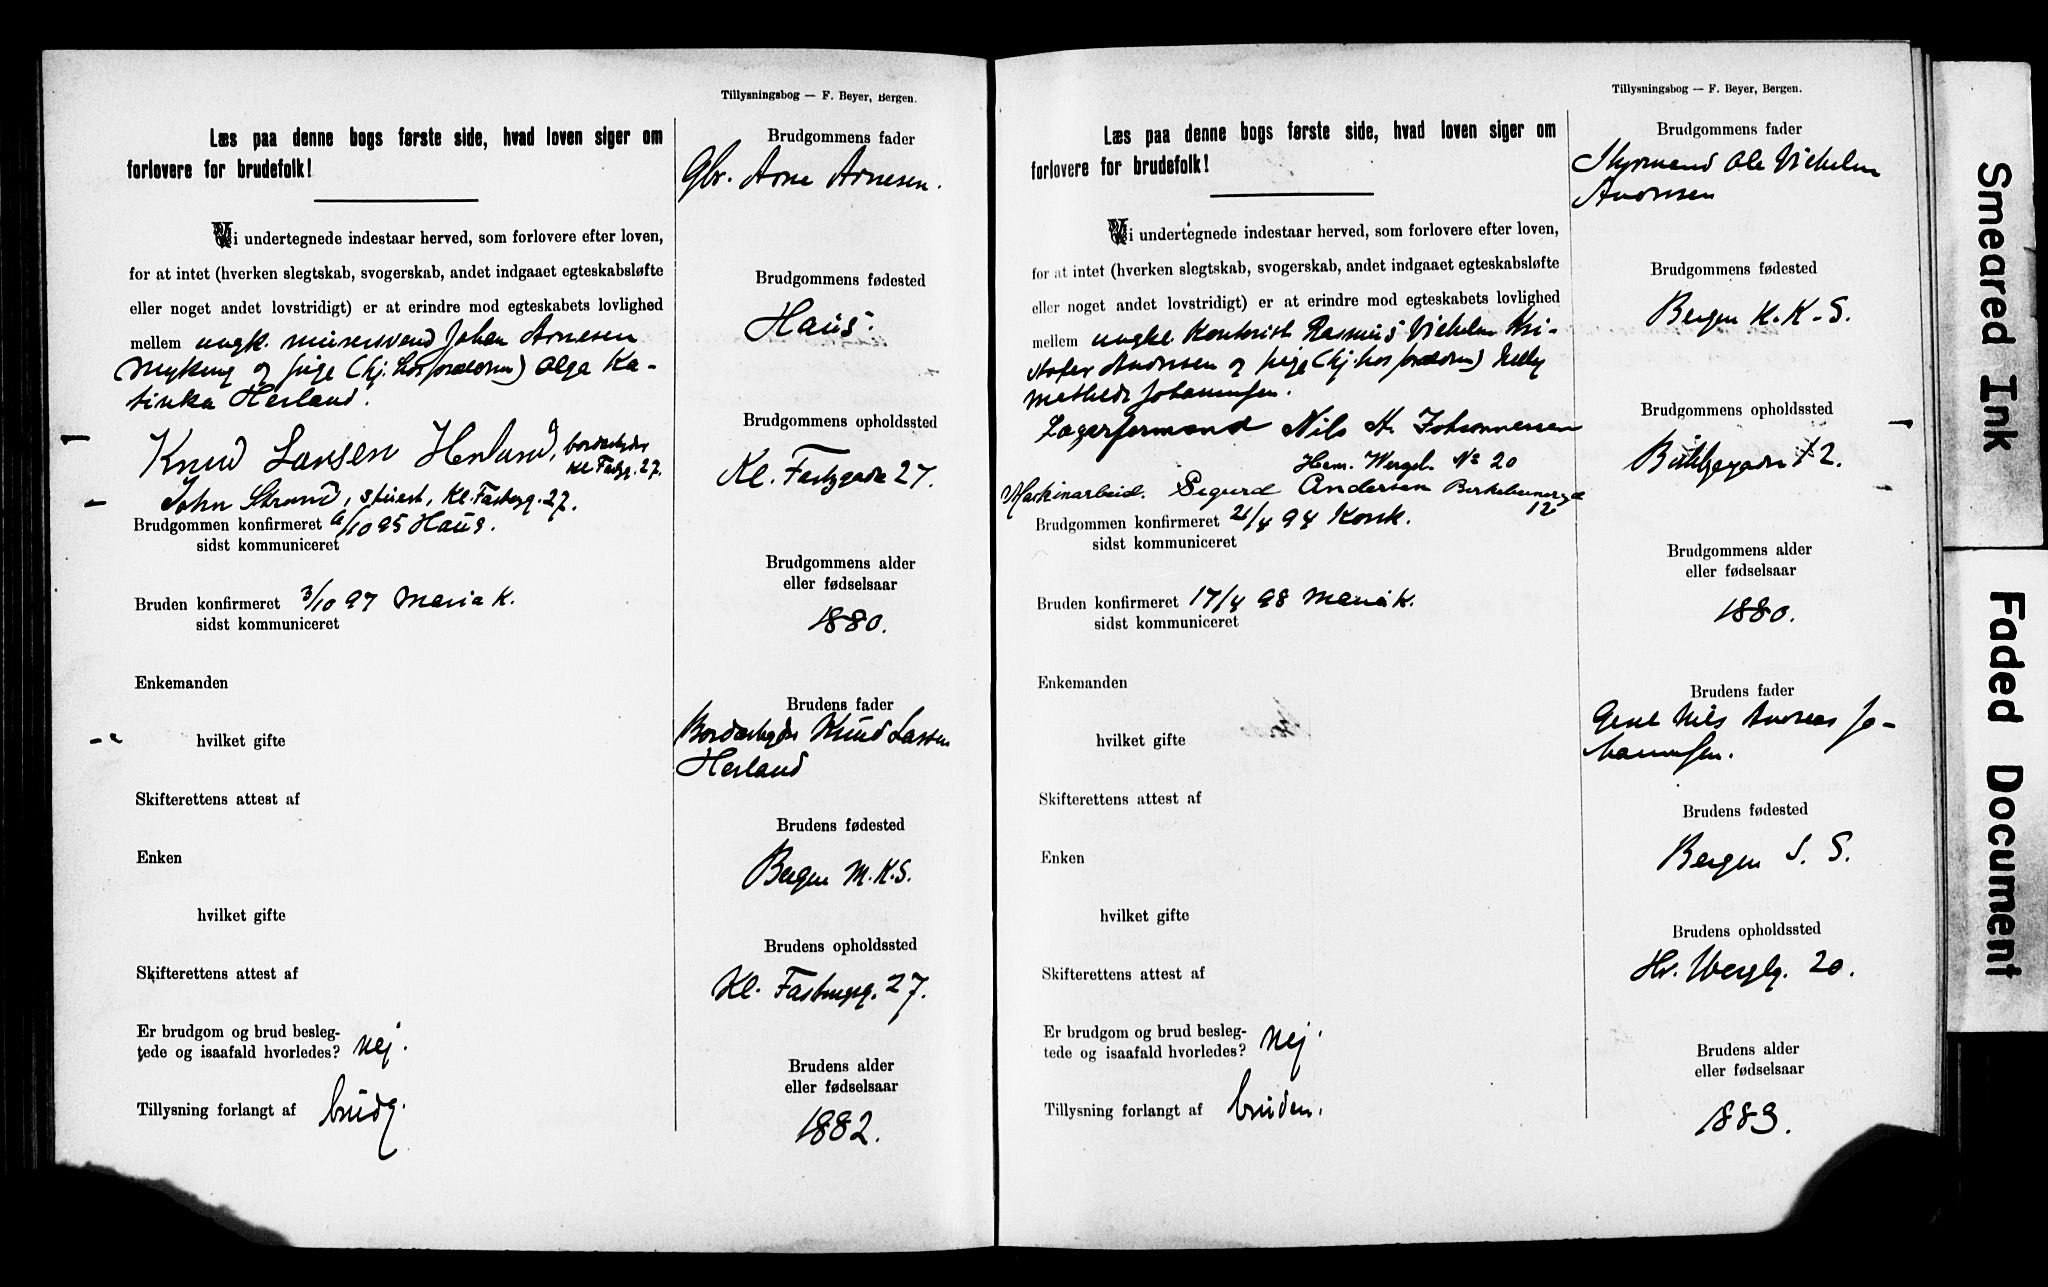 Tillysningsbog — F. Beyer, Bergen.
Læs paa denne bogs første side, hvad loven siger om
forlovere for brudefolk!
Vi undertegnede indestaar herved, som forlovere efter loven,
for at intet (hverken slegtskab, svogerskab, andet indgaaet egteskabsløfte
eller noget andet lovstridigt) er at erindre mod egteskabets lovlighed
mellem ungk. murersvend Johan Arnesen
Myking og pige (hj. hos forældren) Olga Ka-
tinka Herland.
Knud Larsen Herland, bordarbejder
Kl. Fastg. 27.
John Strand, Kl. Fastg. 27.
Brudgommen konfirmeret 6/10 95 Haus.
sidst kommuniceret
Bruden konfirmeret 3/10 97 Maria K.
sidst kommuniceret
Enkemanden
hvilket gifte
Skifterettens attest af
Enken
hvilket gifte
Skifterettens attest af
Er brudgom og brud besleg-
tede og isaafald hvorledes? nej.
Tillysning forlangt af brudg.
Brudgommens fader
Gbr. Arne Arnesen.
Brudgommens fødested
Haus.
Brudgommens opholdssted
Kl. Fastnggade 27.
Brudgommens alder
eller fødselsaar
1880.
Brudens fader
Bordarbejder Knud Larsen
Herland
Brudens fødested
Bergen M.K.S.
Brudens opholdssted
Kl. Fastngsg. 27.
Brudens alder
eller fødselsaar
1882.
Tillysningsbog — F. Beyer, Bergen.
Læs paa denne bogs første side, hvad loven siger om
forlovere for brudefolk!
Vi undertegnede indestaar herved, som forlovere efter loven,
for at intet (hverken slegtskab, svogerskab, andet indgaaet egteskabsløfte
eller noget andet lovstridigt) er at erindre mod egteskabets lovlighed
mellem ungk. Kontorist Rasmus Vilhelm Kri-
stofer Andersen og pige (hj. hos forældren) Nelly
Mathilde Johannesen.
Lagerformand Nils A. Johannessen
Hem. Wergel. No 20
Maskinarbeid. Sigurd Andersen Birkebeinergd
12
Brudgommen konfirmeret 21/4 94 Korsk.
sidst kommuniceret
Bruden konfirmeret 17/4 98 Maria k.
sidst kommuniceret
Enkemanden
hvilket gifte
Skifterettens attest af
Enken
hvilket gifte
Skifterettens attest af
Er brudgom og brud besleg-
tede og isaafald hvorledes? nej.
Tillysning forlangt af bruden.
Brudgommens fader
Styrmand Ole Vilhelm
Andersen
Brudgommens fødested
Bergen K.K.S.
Brudgommens opholdssted
12.
Brudgommens alder
eller fødselsaar
1880.
Brudens fader
Nils Andreas Jo-
hannesen.
Brudens fødested
Bergen S. S.
Brudens opholdssted
Hr. Werglg. 20.
Brudens alder
eller fødselsaar
1883.
Smeared Ink
Faded Document